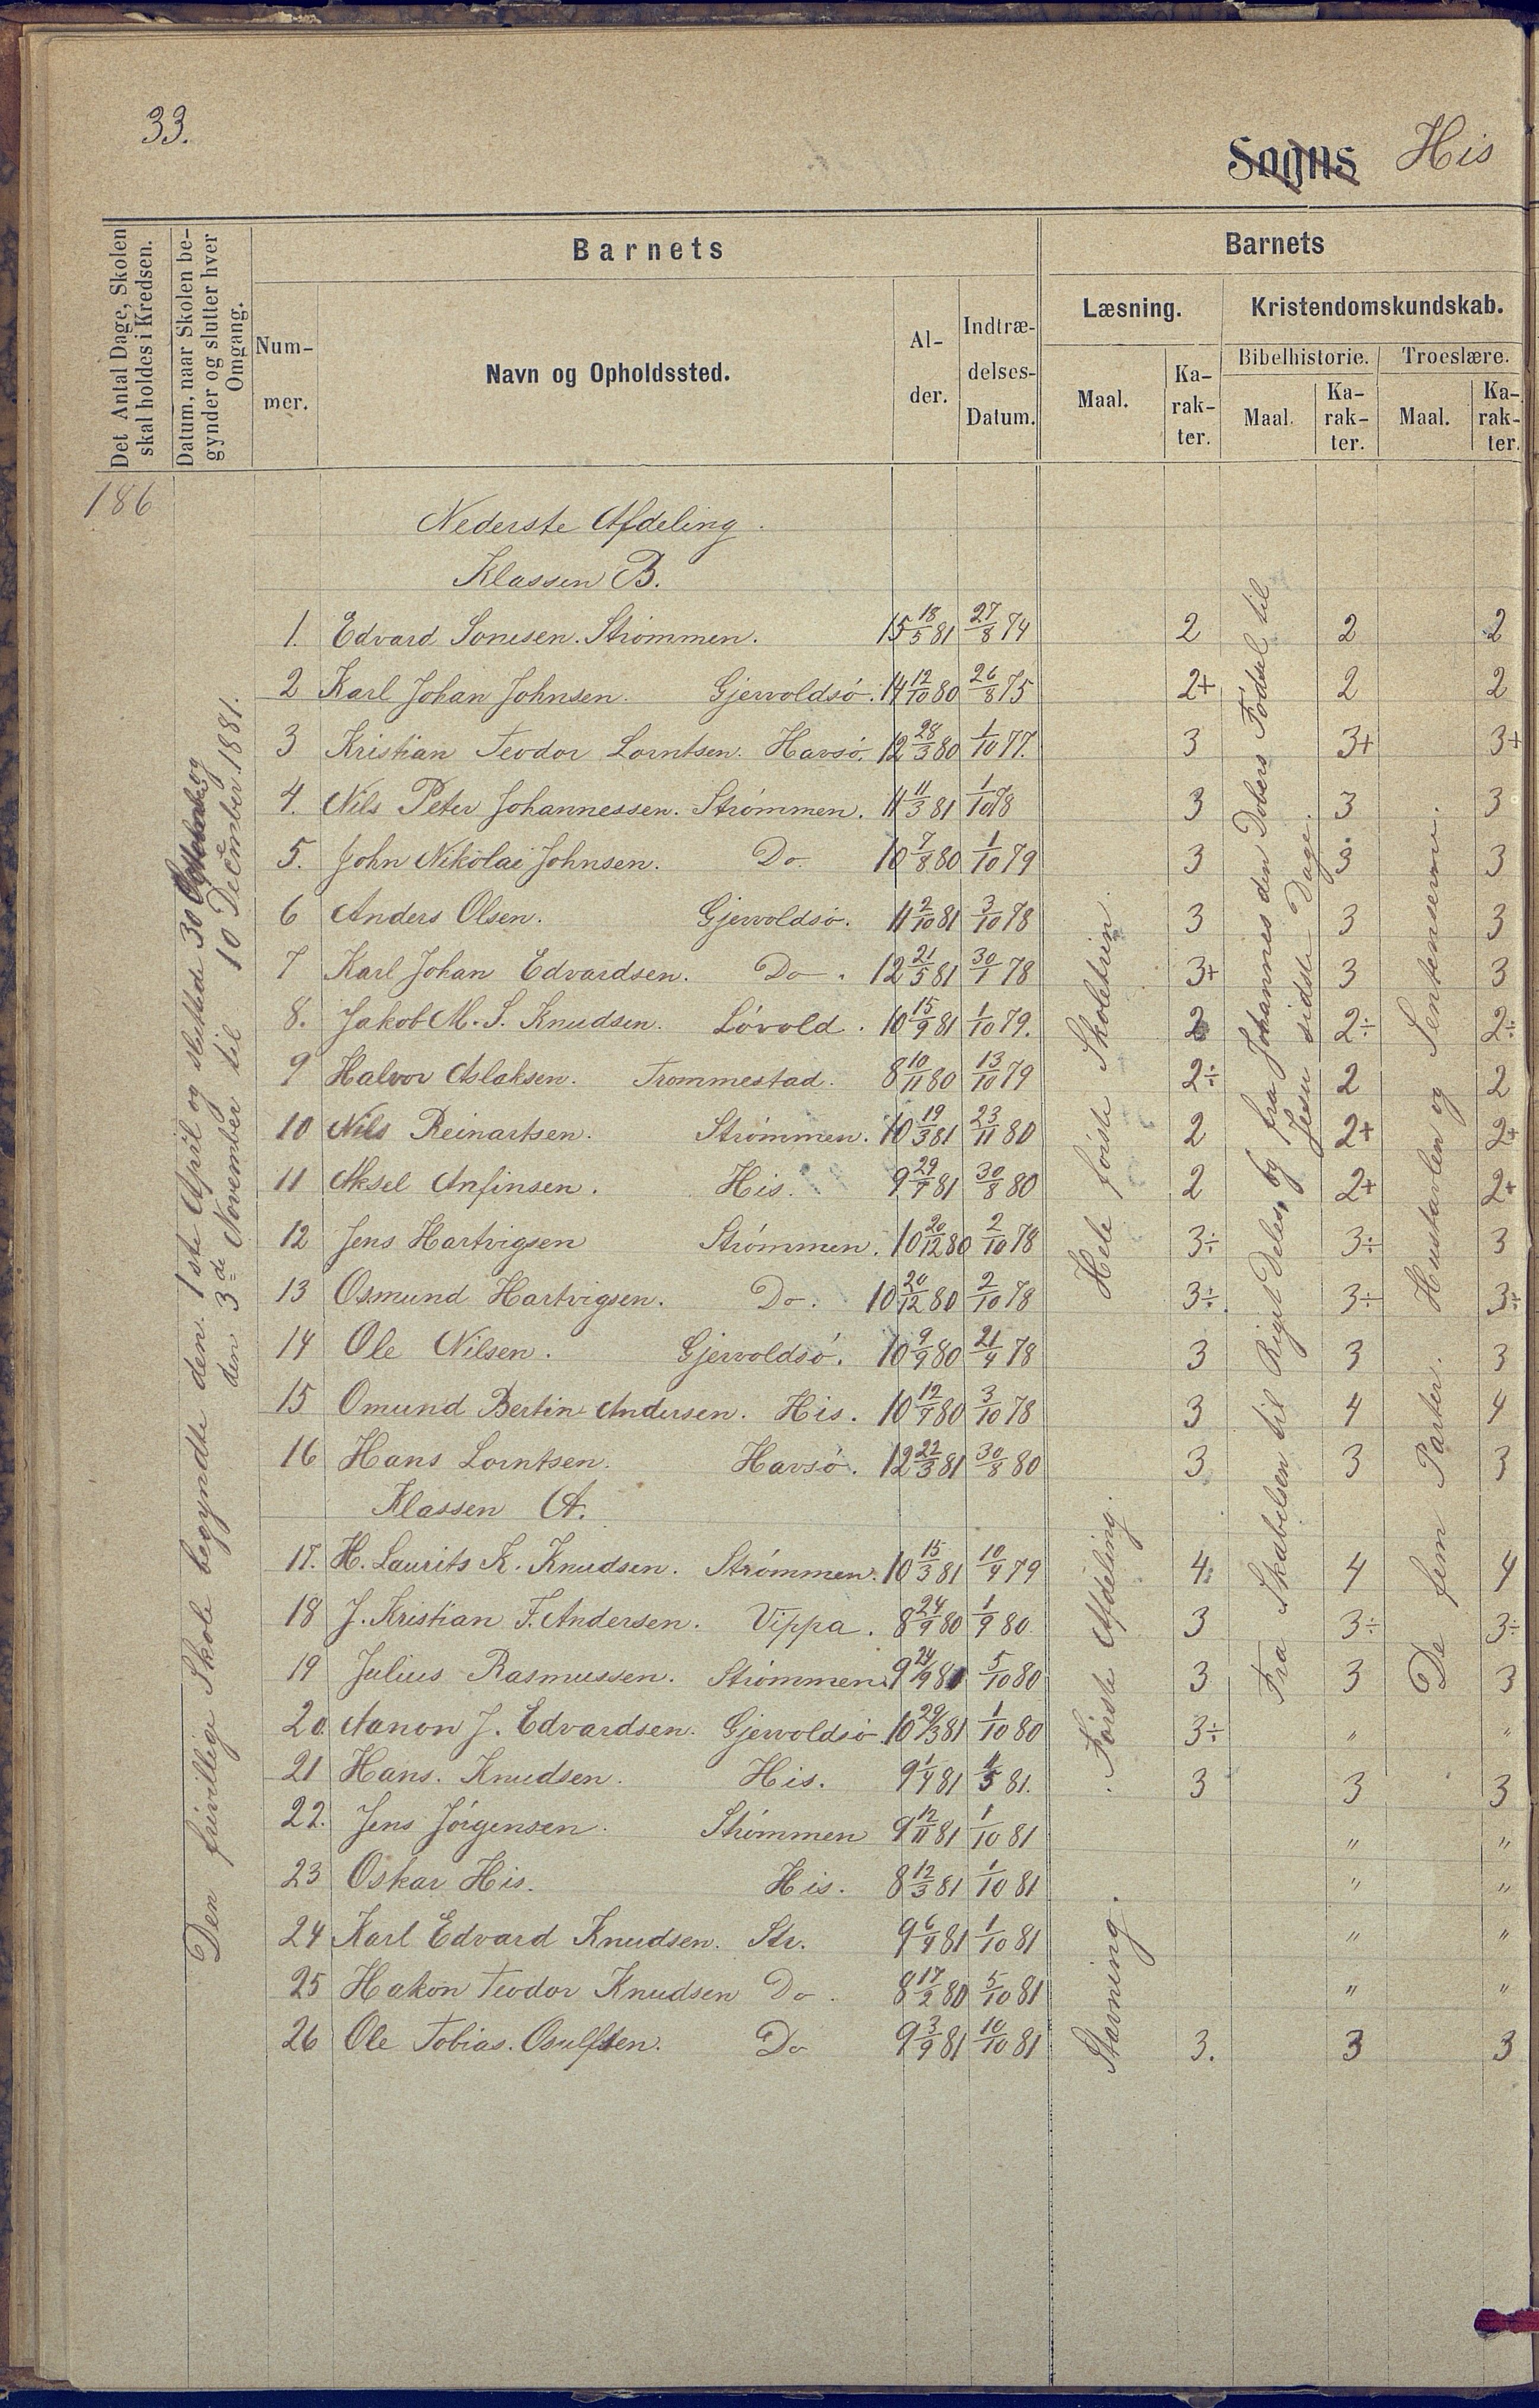 33.
Sogns His
Det Antal Dage, Skolen skal holdes i Kredsen.
Datum, naar Skolen begynder og slutter hver Omgang.
Barnets
Barnets
Nummer.
Navn og Opholdssted.
Alder.
Indtrædelses-Datum.
Læsning.
Kristendomskundskab.
Maal.
Karakter.
Bibelhistorie.
Troeslære.
Maal.
Karakter.
Maal.
Karakter.
186
Den frivillige Skole begyndte den 1ste April og sluttede 30 og
den 3de November til 10 December 1881.
Nederste Afdeling.
Klassen B.
1. Edvard Sonesen. Strømmen. 15 18/5 81 27/8 74 2 2 2
2 Karl Johan Johnsen. Gjervoldsø. 14 12/10 80 26/8 75 2+ 2 2
3 Kristian Teodor Lorntsen. Havsø. 12 28/3 80 1/10 77. 3 3+ 3+
4. Nils Peter Johannessen. Strømmen. 11 11/3 81 1/10 78 3 3 3
5. John Nikolai Johnsen. Do 10 7/8 80 1/10 79 3 3 3
6 Anders Olsen. Gjervoldsø. 11 2/10 81 3/10 78 3 3 3
7 Karl Johan Edvardsen. Do. 12 21/5 81 30/1 78 3+ 3 3
8. Jakob M. S. Knudsen. Løvold. 10 15/9 81 1/10 79. 2 2÷ 2÷
9 Halvor Aslaksen. Trommestad. 8 10/11 80 13/10 79 2÷ 2 2
10 Nils Reinartsen. Strømmen. 10 19/3 81 23/11 80 2 2+ 2+
11 Aksel Anfinsen. His. 9 29/9 81 30/8 80 2 2+ 2+
12 Jens Hartvigsen Strømmen. 10 20/12 80 2/10 78 3÷ 3÷ 3
13 Osmund Hartvigsen. Do. 10 20/12 80 2/10 78 3÷. 3÷ 3÷
14 Ole Nilsen. Gjervoldsø. 10 9/9 80 21/4 78 3 3 3
15 Omund Bertin Andersen. His. 10 12/9 80 3/10 78 3 4 4
16 Hans Lorntsen. Havsø. 12 22/3 81 30/8 80 3 3 3
Klassen A.
17. H. Laurits K. Knudsen. Strømmen. 10 15/3 81 10/4 79 4 4 4
18 J. Kristian F. Andersen. Vippa. 8 24/9 80 1/9 80. 3 3÷ 3÷
19 Julius Rasmussen. Strømmen. 9 24/9 81 5/10 80 3 3 3
20. Aanon J. Edvardsen. Gjervoldsø. 10 29/3 81 1/10 80 3÷ " "
21 Hans. Knudsen. His. 9 1/4 81 81. 3 3 3
22. Jens Jørgensen. Strømmen 9 12/11 81 1/10 81 " "
23 Oskar His. His. 8 12/3 81 1/10 81 " "
24 Karl Edvard Knudsen. Str. 9 6/4 81 1/10 81 " "
25 Hakon Teodor Knudsen Do. 8 17/2 80 5/10 81 " "
26 Ole Tobias. Osulfsen. Do 9 3/9 81 10/10 81 3. 3 3
Hele første Skoletrin
Første Afdeling.
Stavning.
Fra Skabelsen til Riget Deles, og fra Johannes den Døbers Fødsel til
Jesu sidste Dage.
De fem Parter. Hustavlen og Sentenserne.